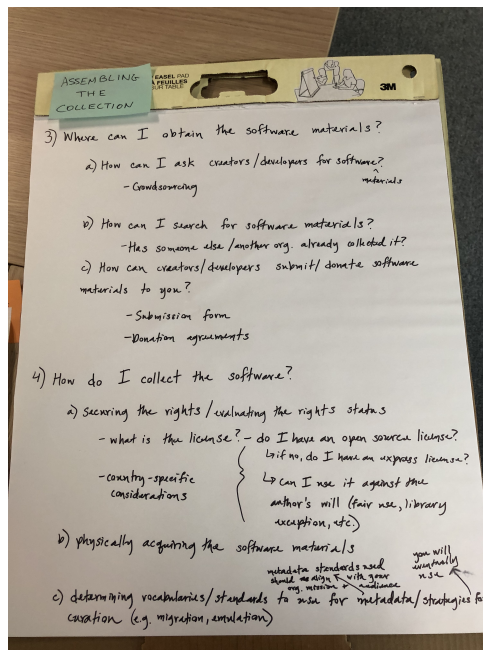 ASSEMBLING
THE
COLLECTION
EASEL PAD
À FEUILLES
OUR TABLE
3M
3) Where can I obtain the software materials?
a) How can I ask creators/developers for software?
materials
- Crowdsourcing
b) How can I search for software materials?
- Has someone else/another org. already collected it?
c) How can creators/developers submit/donate software
materials to you?
- Submission form
- Donation agreements
4) How do I collect the software?
a) Securing the rights/evaluating the rights status
- what is the license? - do I have an open source license?
↳ if no, do I have an express license?
- country-specific
considerations
↳ can I use it against the
author's will (fair use, library
exception, etc.)
b) physically acquiring the software materials
metadata standards used
should align with your
org. mission + audience
you will
eventually
use
c) determining vocabularies/standards to use for metadata/strategies for
curation (e.g. migration, emulation)